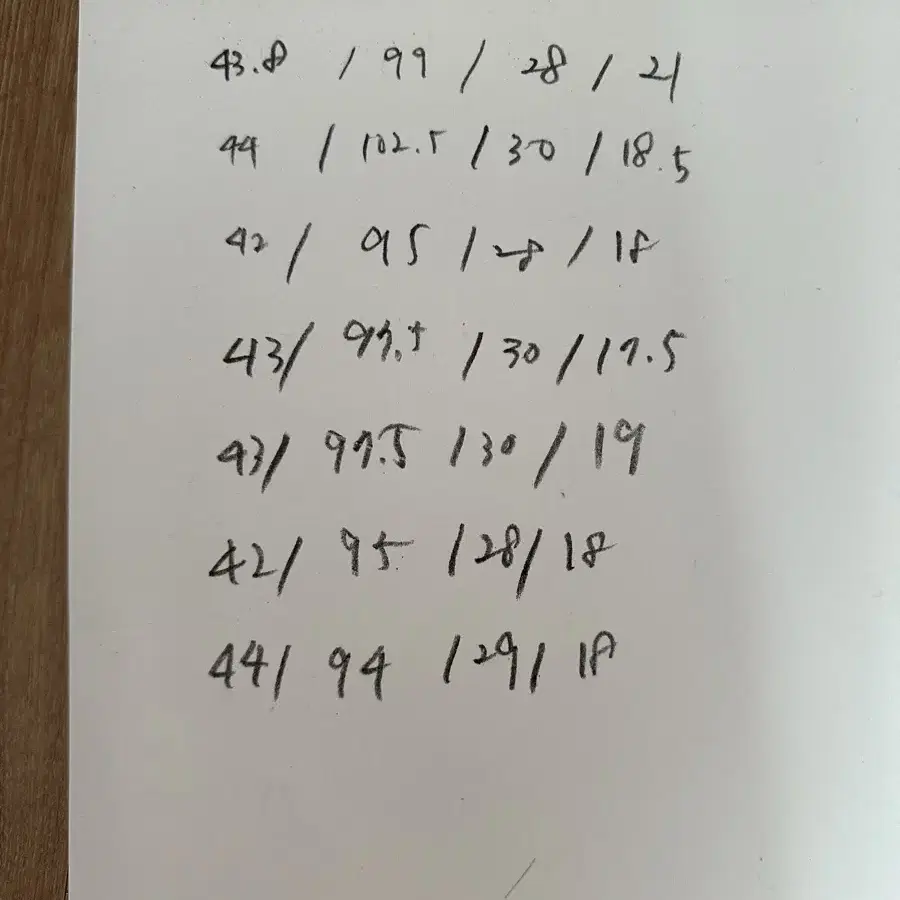 43.8 / 99 / 28 / 21
44 / 102.5 / 30 / 18.5
42 / 95 / 28 / 18
43 / 97.5 / 30 / 17.5
43 / 97.5 / 30 / 19
42 / 95 / 28 / 18
44 / 94 / 29 / 18